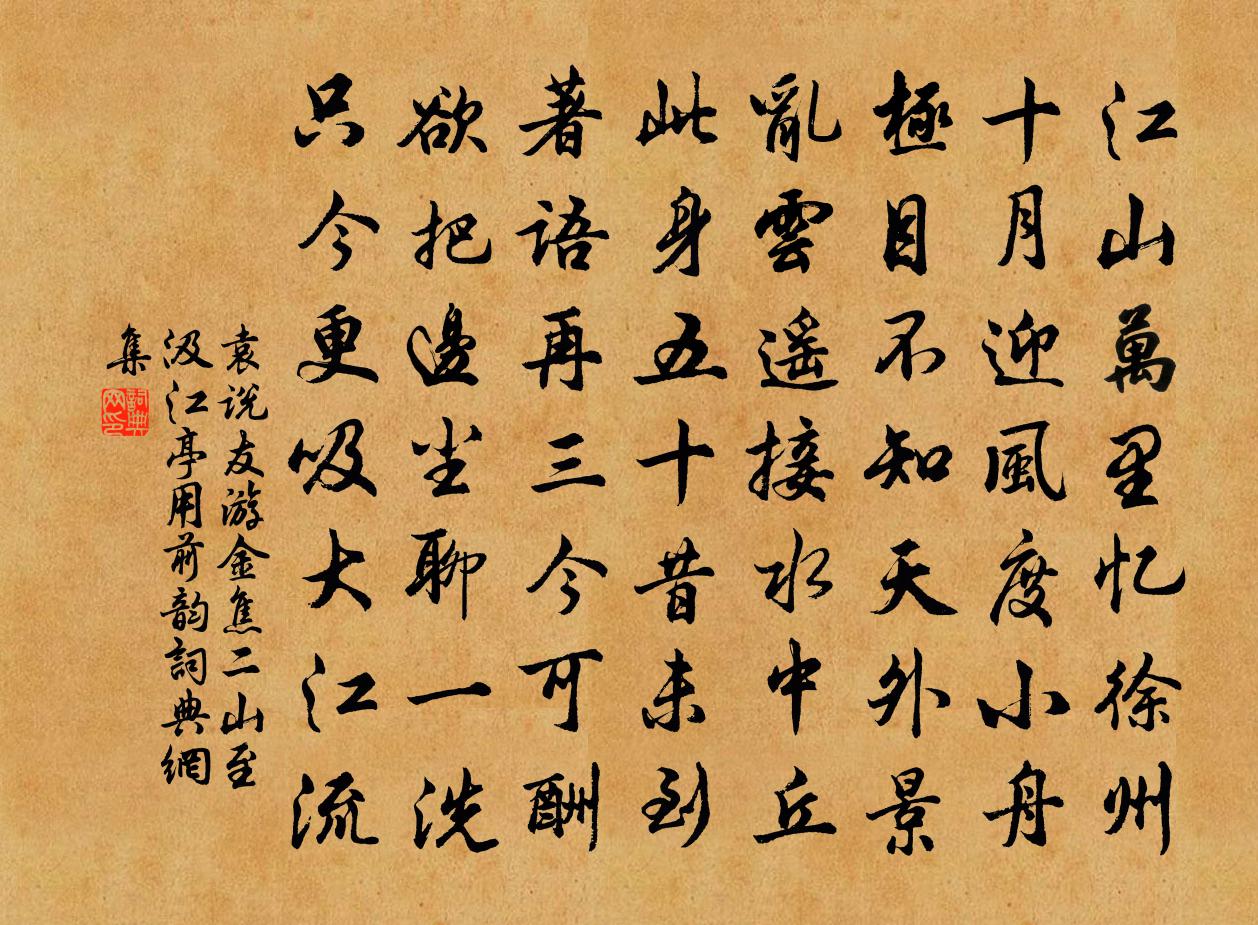 江山萬里忆徐州
十月迎風度小舟
極目不知天外景
亂雲遥接水中丘
此身五十昔未到
著語再三今可酬
欲把邊尘聊一洗
只今更吸大江流
袁说友游金焦二山至
汲江亭用前韵詞典網
集
詞典网印